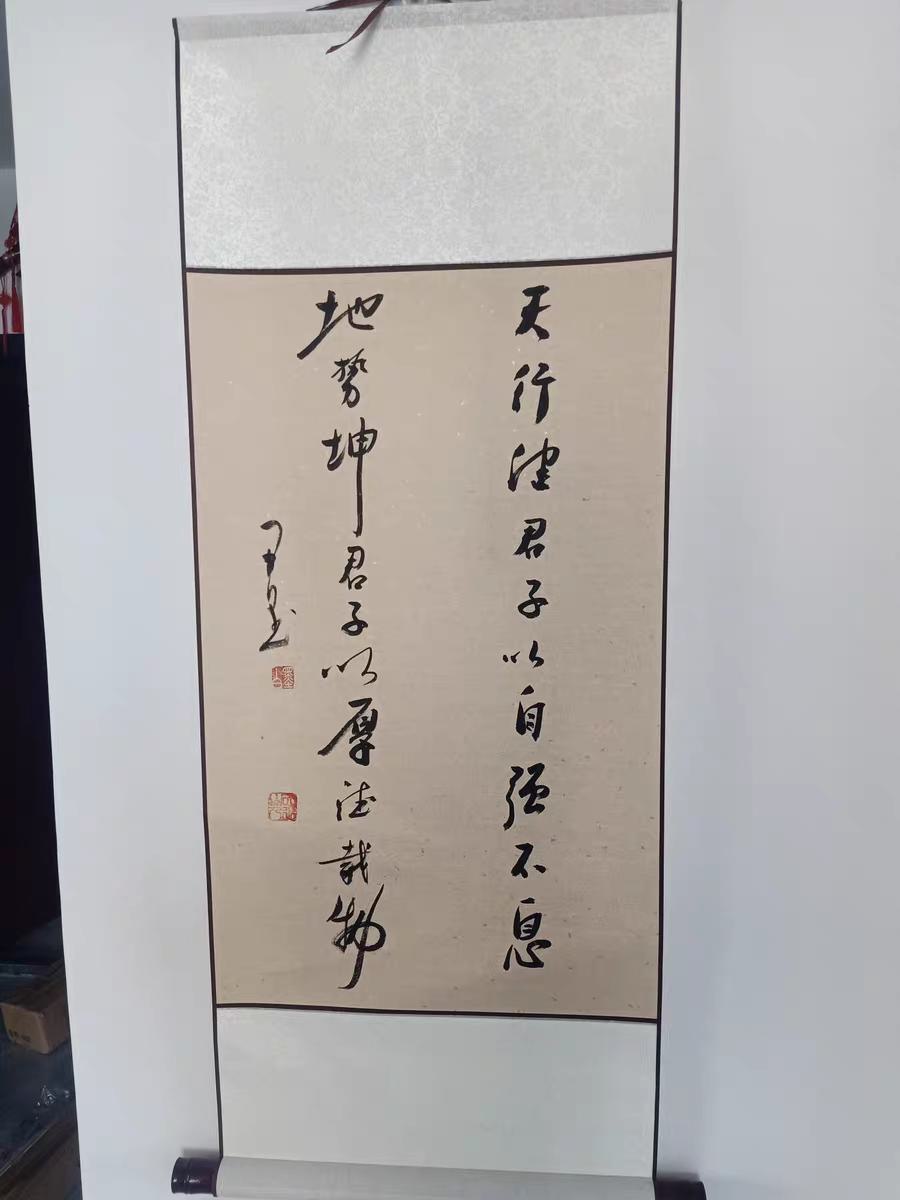 天行健君子以自强不息
地势坤君子以厚德载物